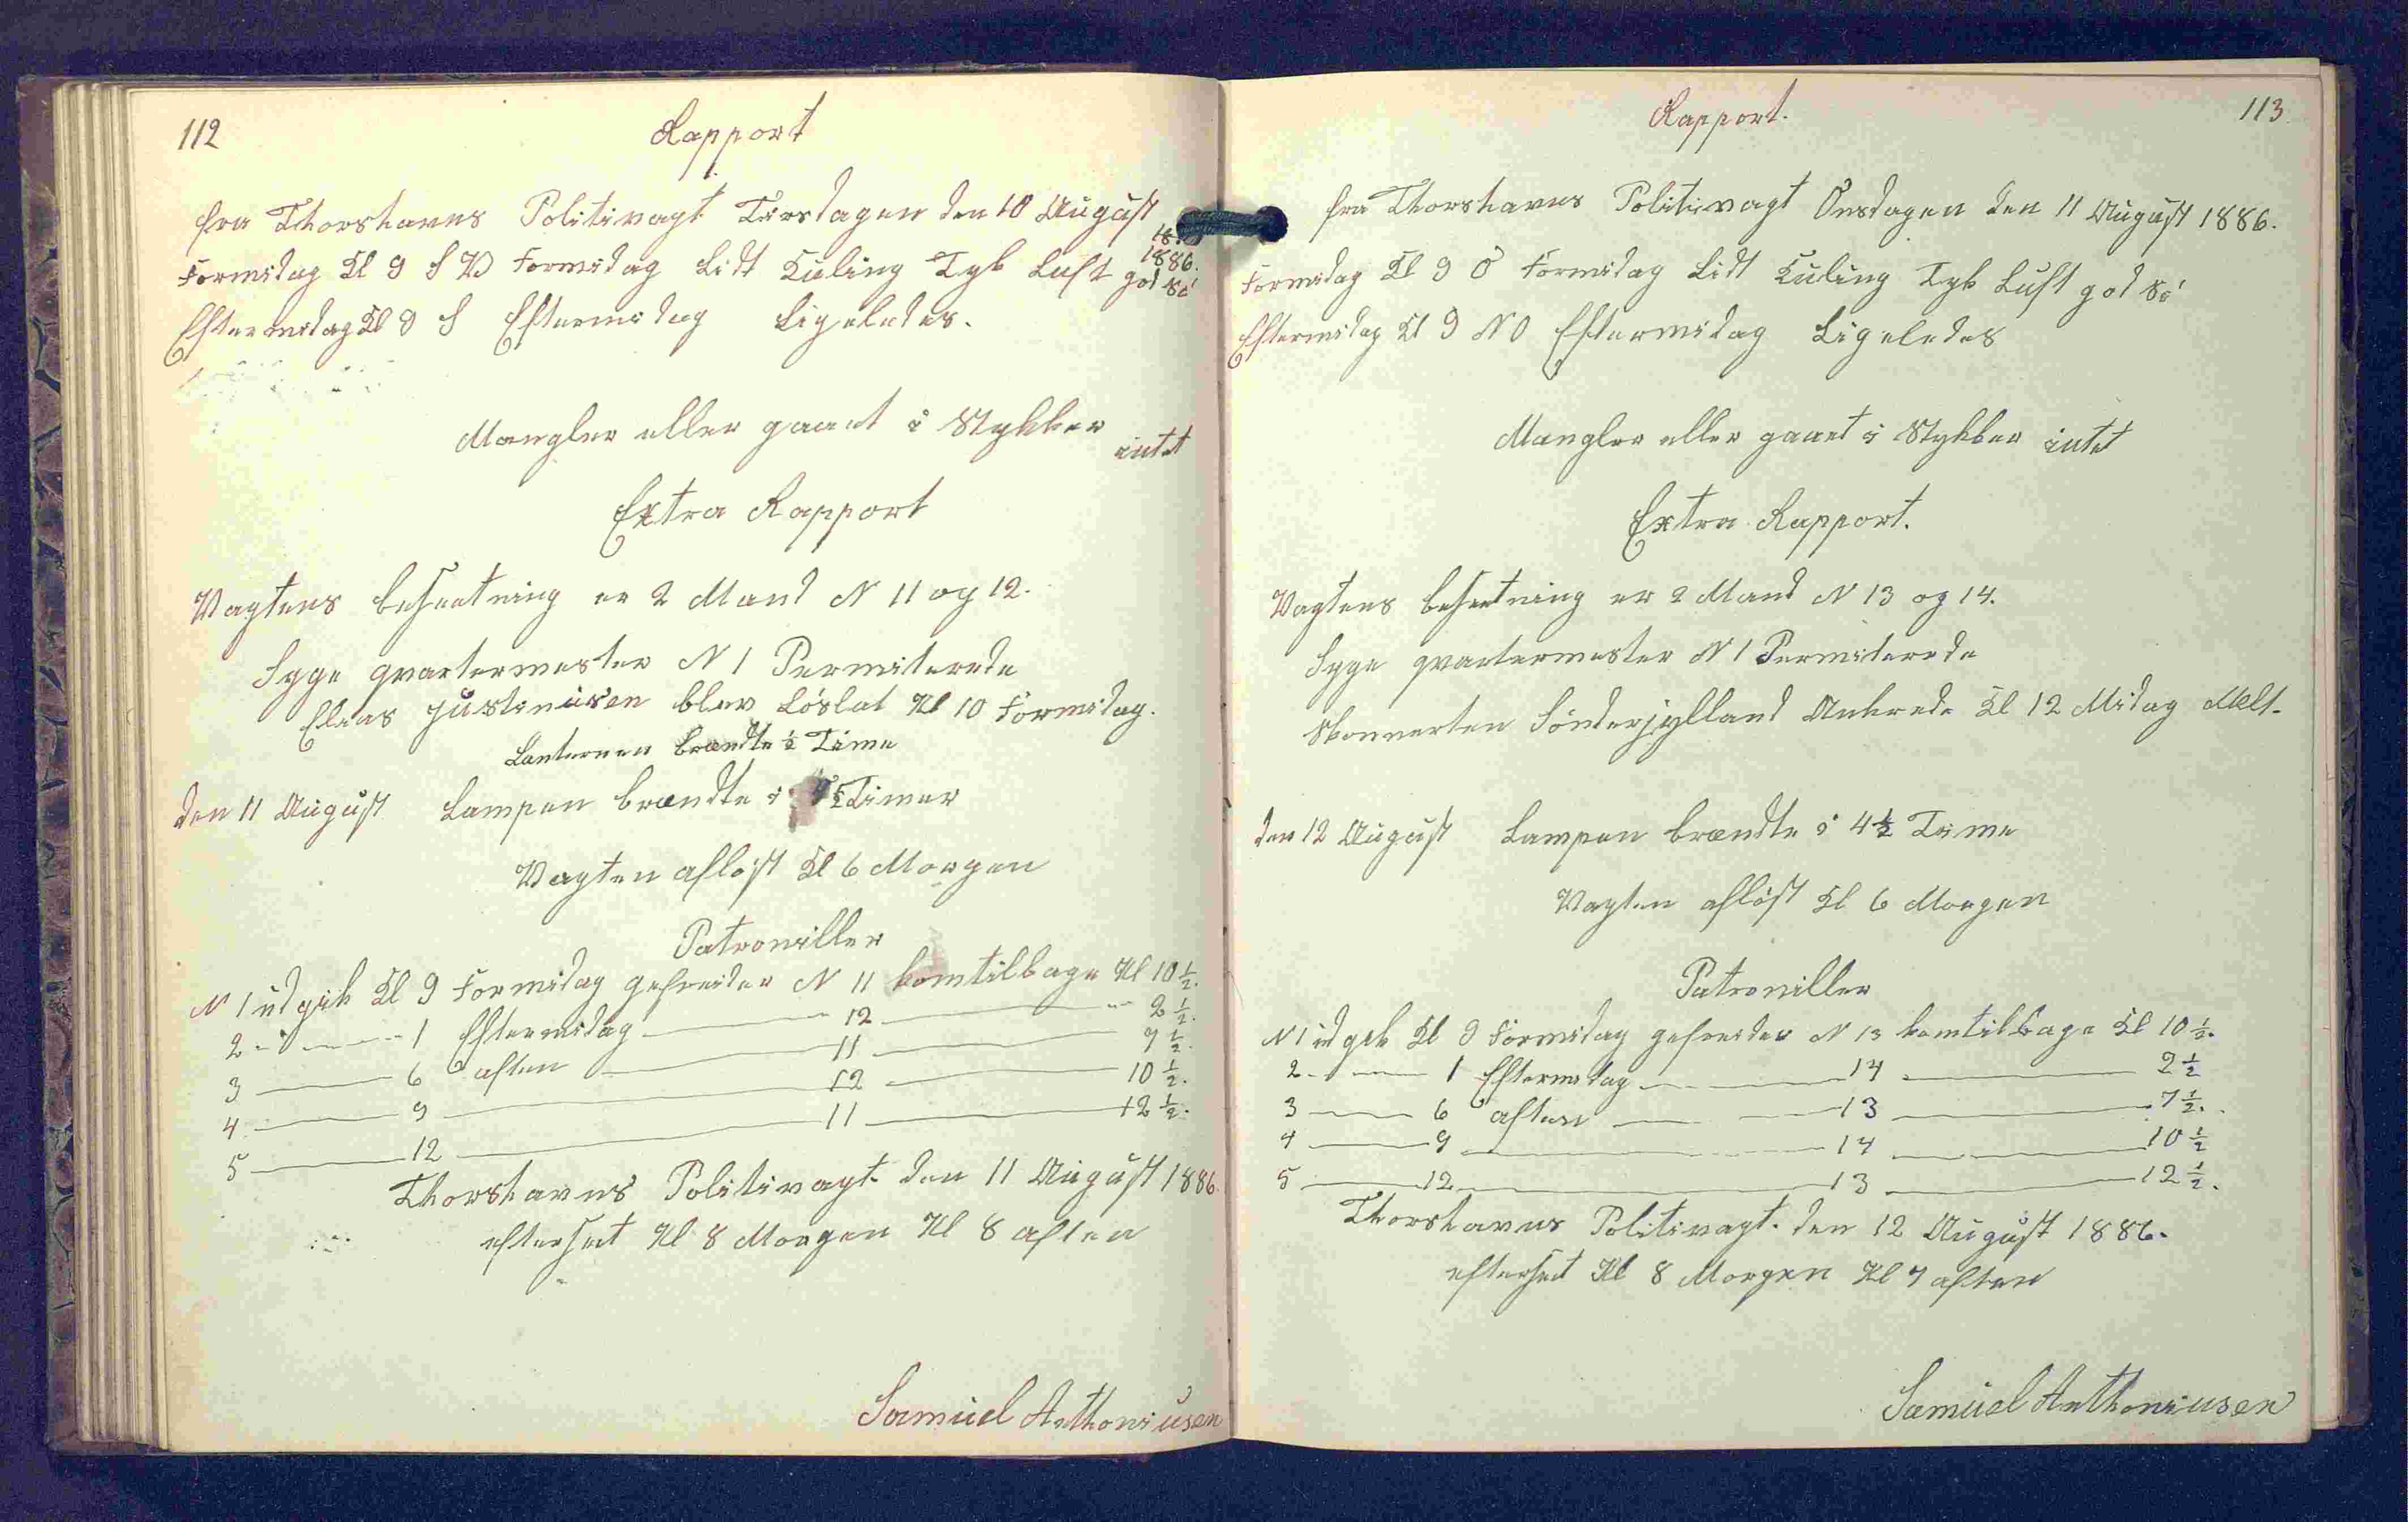 112
Rapport
fra Thorshavns Politivagt Tirsdagen den 10 August
1886.
Formidag Kl 9 S V Formidag Lidt Kuling Tyk Luft god Sö
Eftermidag Kl 9 S Eftermidag Ligeledes.
Mangler eller gaaet i Stykker intet
Extra Rapport
Vagtens besætning er 2 Mand N 11 og 12.
Syge qvartermester N 1 Permiterede
Elias Justinusen blev Löslat Kl 10 Formidag.
Lanternen brændte ½ Time
den 11 August Lampen brændte i Timer
Vagten aflöst Kl 6 Morgen
Patroviller
N 1 udgik Kl 9 Formidag gefreider N 11 komtilbage Kl 10 ½.
2 - - - 1 Eftermidag — 12 — 2 ½.
3 — 6 aften — 11 — 7 ½.
4 — 9 — 12 — 10 ½.
5 — 12 — 11 — 12 ½.
Thorshavns Politivagt den 11 August 1886
efterset Kl 8 Morgen Kl 8 aften
Samuel Anthoniusen
113.
Rapport.
fra Thorshavns Politivagt Onsdagen den 11 August 1886.
Formidag Kl 9 O Formidag Lidt Kuling Tyk Luft god Sö
Eftermidag Kl 9 N O Eftermidag Ligeledes
Mangler eller gaaet i Stykker intet
Extra Rapport.
Vagtens besætning er 2 Mand N 13 og 14.
Syge qvartermester N 1 Permiterede
Skonnerten Sönderjylland Ankrede Kl 12 Midag Melt.
den 12 August Lampen brændte i 4½ Time
Vagten aflöst Kl 6 Morgen
Patroviller
N 1 udgik Kl 9 Formidag gefreider N 13 komtilbage Kl 10 ½.
2 - - 1 Eftermidag — 14 — 2 ½
3 — 6 aften — 13 — 7 ½.
4 — 9 — 14 — 10 ½
5 — 12 — 13 — 12 ½.
Thorshavns Politivagt. den 12 August 1886.
efterset Kl 8 Morgen Kl 7 aften
Samuel Anthoniusen